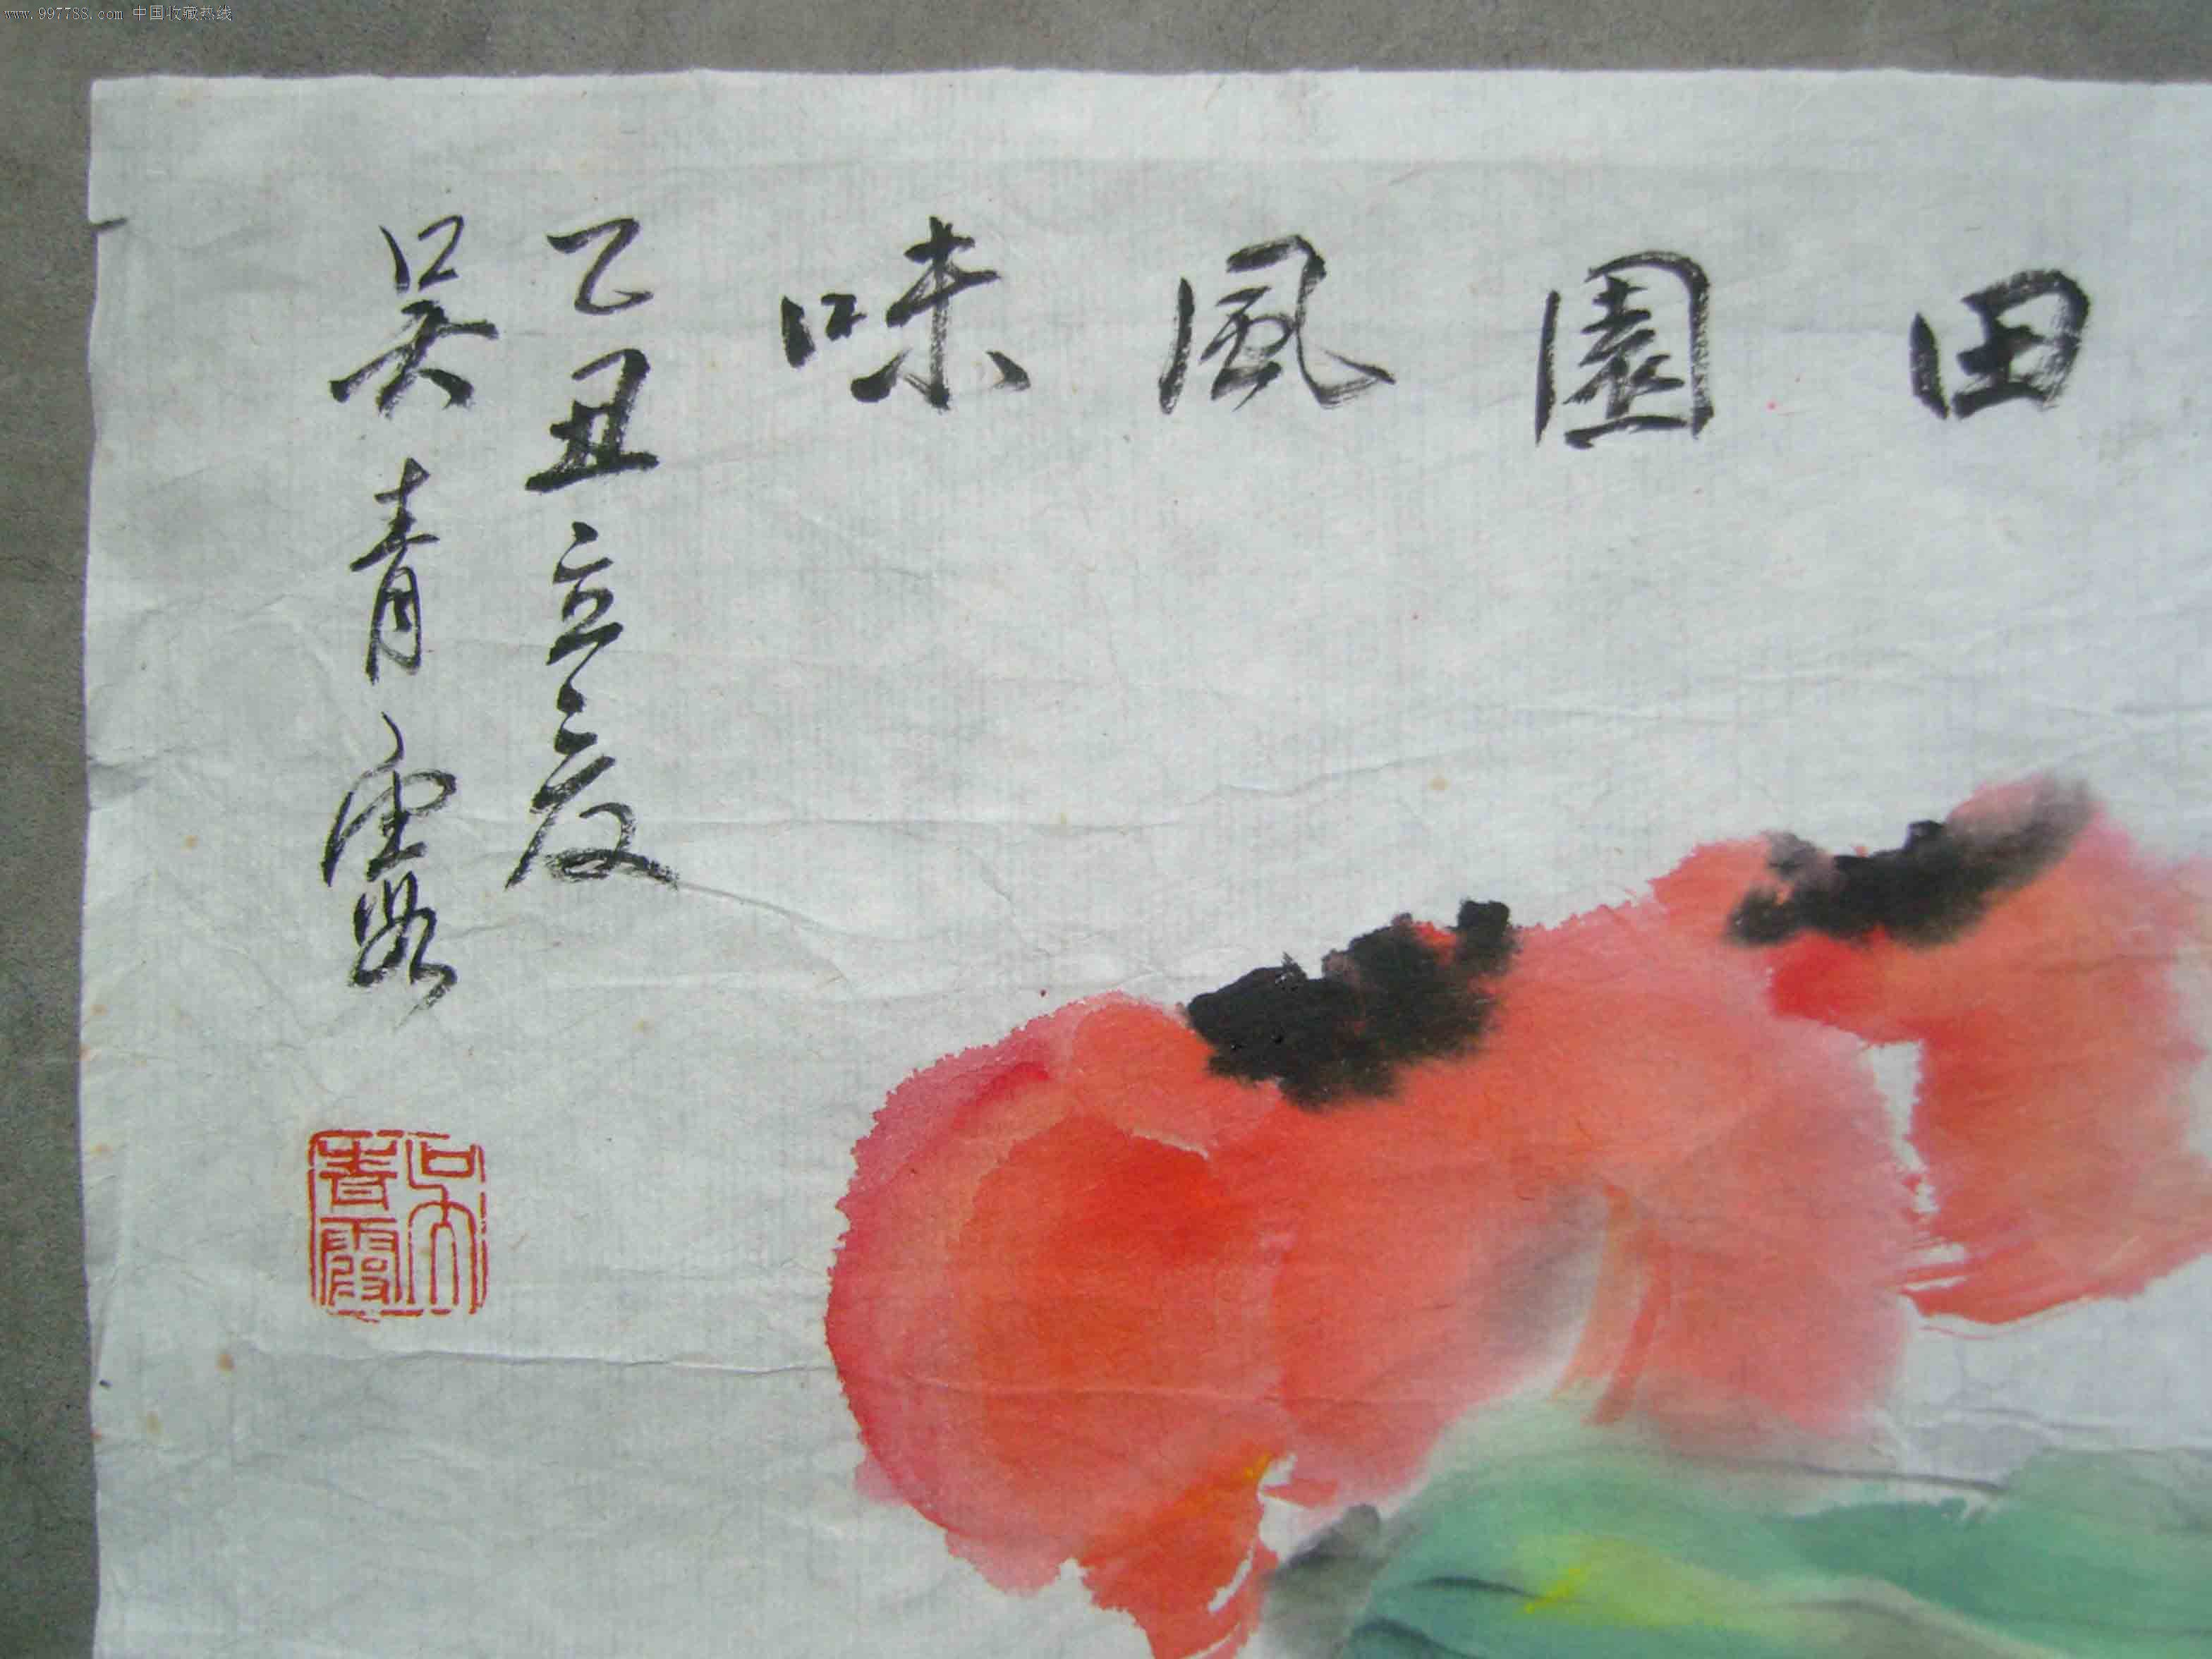 www.997788.com 中国收藏热线
田園風味
乙丑立夏
吴青霞
吴青霞